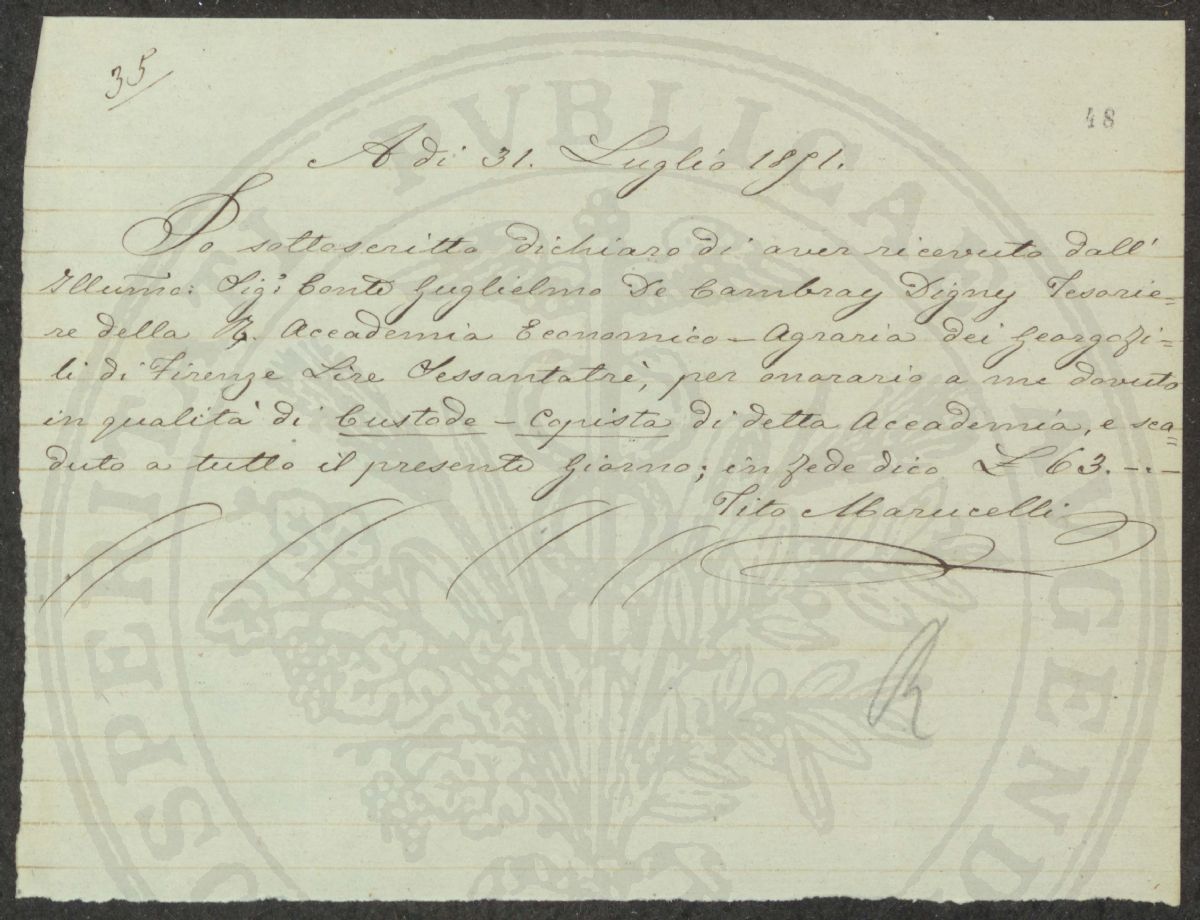 35
48
A di 31. Luglio 1851.
Io sottoscritto dichiaro di aver ricevuto dall'
Illumo: Sigr: Conte Guglielmo De Cambray Digny Tesorie=
re della R. Accademia Economico-Agraria dei Georgofi=
li di Firenze Lire Sessantatrè, per onorario a me dovuto
in qualità di Custode-Copista di detta Accademia, e sca=
duto a tutto il presente Giorno; in fede dico £ 63.-.-
Tito Marucelli
R
PROSPERITATI PVBLICAE AVGENDAE